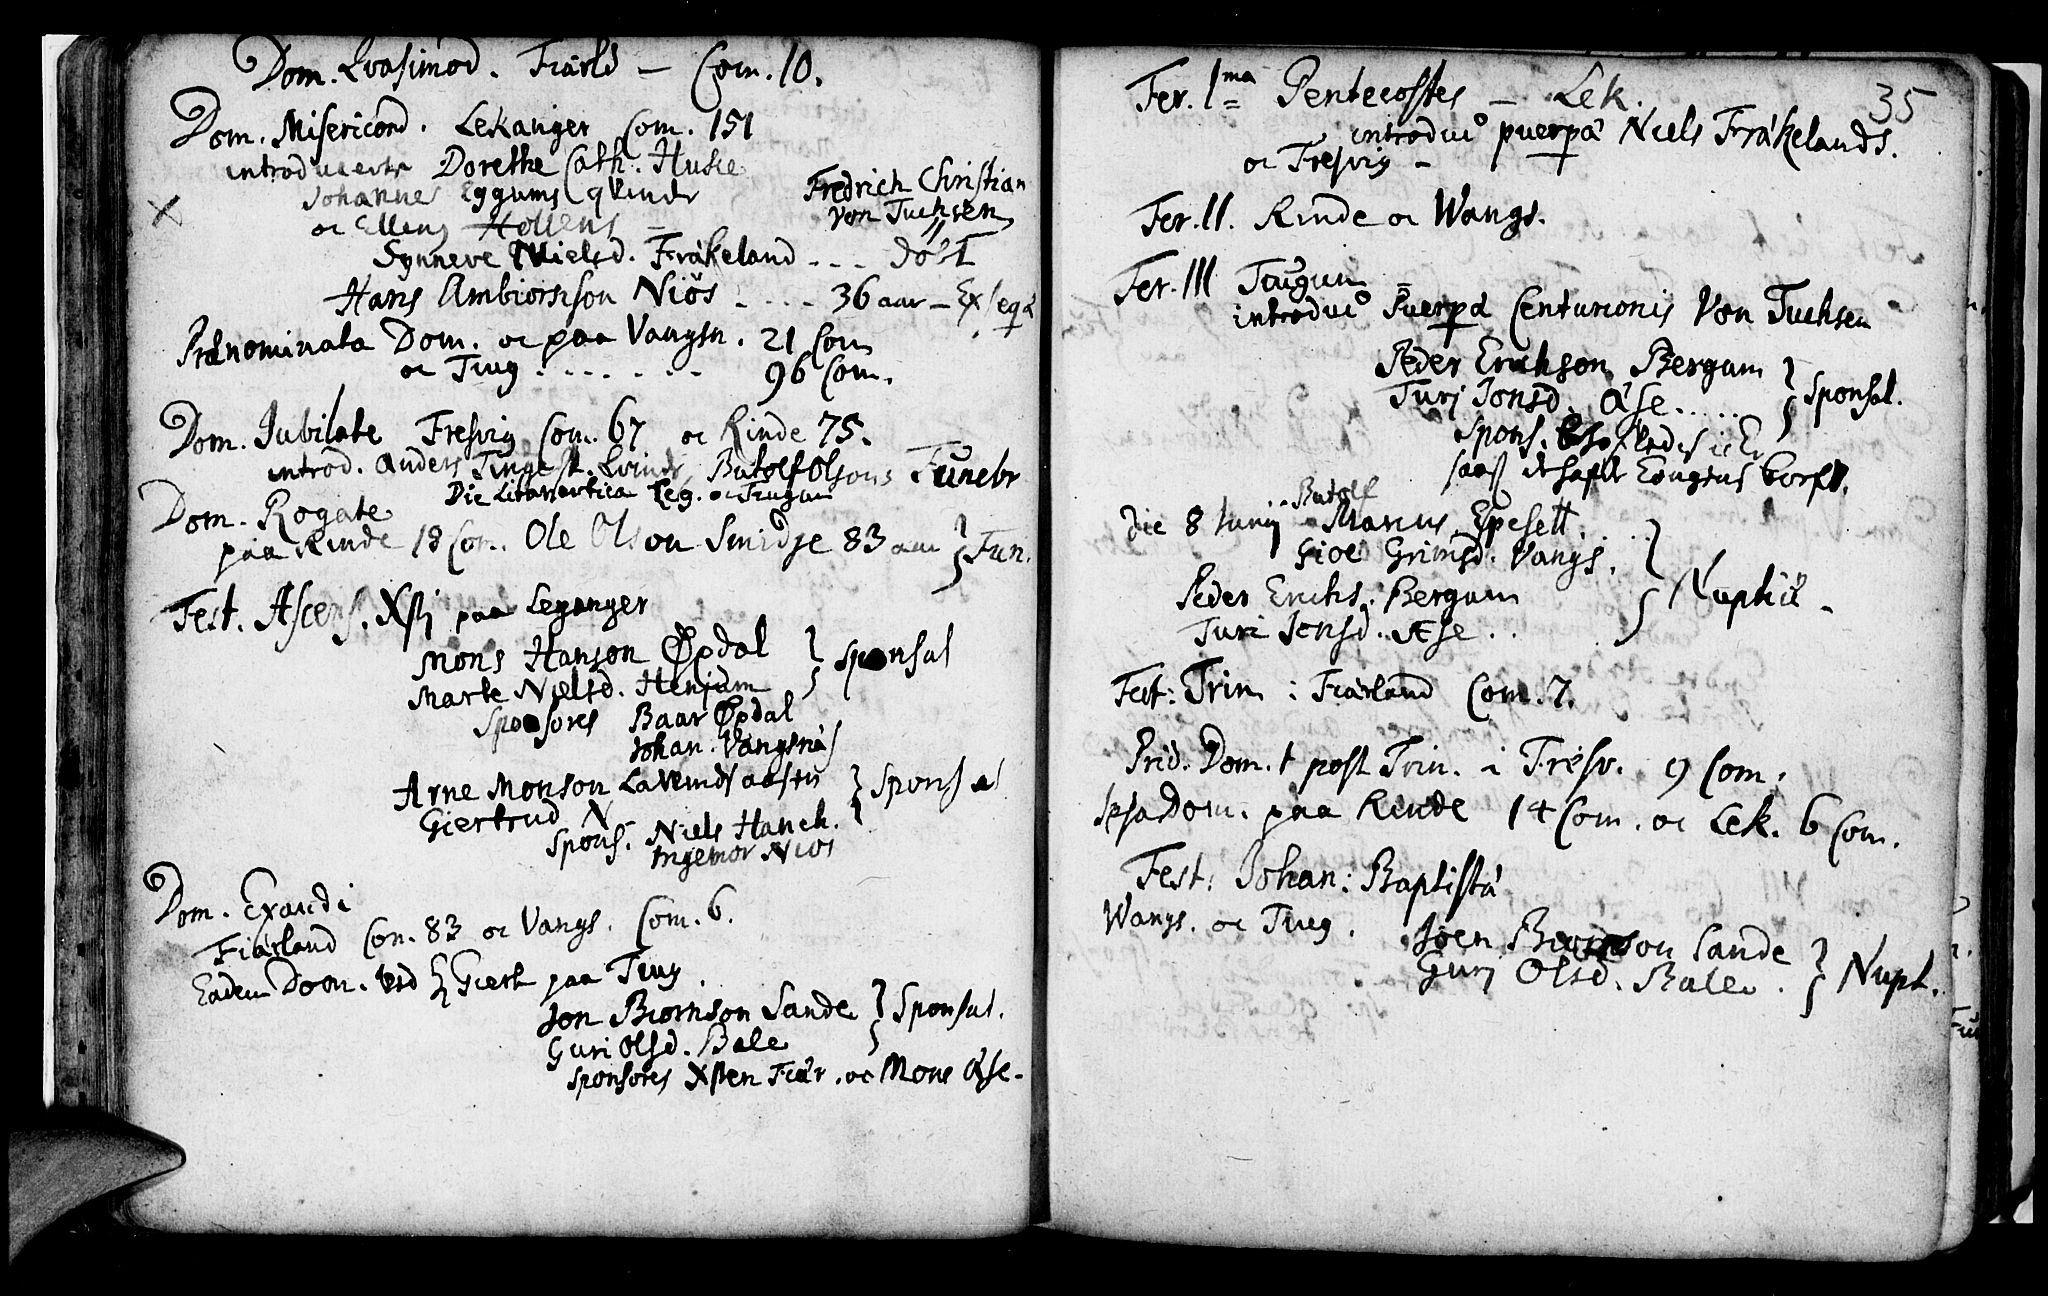 Dom. Qvasimod. Fiärld — Com. 10.
Dom. Misericord. Lekanger Com. 151
introducerte Dorethe Cath. Husie
Johannes Eggums qvinde
Fredrich Christian
Von Tuchsen
oc Ellens Hollens —
Synneve Nielsd. Fråkeland . . . döbt
Hans Ambiörnson Niös . . . . 36 aar — Exseqv
Prænominata Dom. oc paa Vangsn. 21 Com
oc Tiug . . . . . . 96 Com.
Dom. Jubilate Fresvig Com. 67 oc Rinde 75.
introd. Anders Tingest. Qvinde, Botolf Olsons Funebr
Die Litaneutica Leg. oc Tiugum
Dom. Rogate
paa Rinde 18 Com. Ole Olson Smidje 83 aar } Fun.
Fest. Ascens. Xsti paa Leganger
Mons Hanson Øpdal } sponsal
Marte Nielsd. Henjum
Sponsores Baar Øpdal
Johan. Vangsnäs
Arne Monson } Sponsal
Giertrud N.
Spons. Niels Hamch.
Ingemor Niös
Dom. Exaudi
Fiärland Com. 83 oc Vangs. Com. 6.
Eadem Dom. ved H. Giert paa Tiug.
Jon Biörnson Sande } Sponsal.
Guri Olsd. Bale
Sponsores Xsten Fiär. oc Mons Åse.
35
Fer. 1ma Pentecostes — Lek.
introduc° puerpa Niels Fråkelands.
oc Fresvig —
Fer. II. Rinde oc Wangs.
Fer. III Tiugum
introduc° Puerpa Centurionis Von Tuchsen
Peder Erichson Bergum } Sponsal.
Turi Jonsd. Åse . . . .
Spons.
Die 8 Junij Botolf
Marcus Epesett . . .
Gioe Grimsd. Vangs. } Nuptiæ.
Peder Erichs. Bergum
Turi Jensd. Æse . .
Fest: Trin: Fiärland Com. 7.
Prid. Dom. 1 post Trin. i Fresv. 9 Com.
Ipsa Dom. paa Rinde 14 Com. oc Lek. 6 Com.
Fest: Johan: Baptistä
Wangs. oc Tiug.
Joen Biörnson Sande } Nupt.
Guri Olsd. Bale .